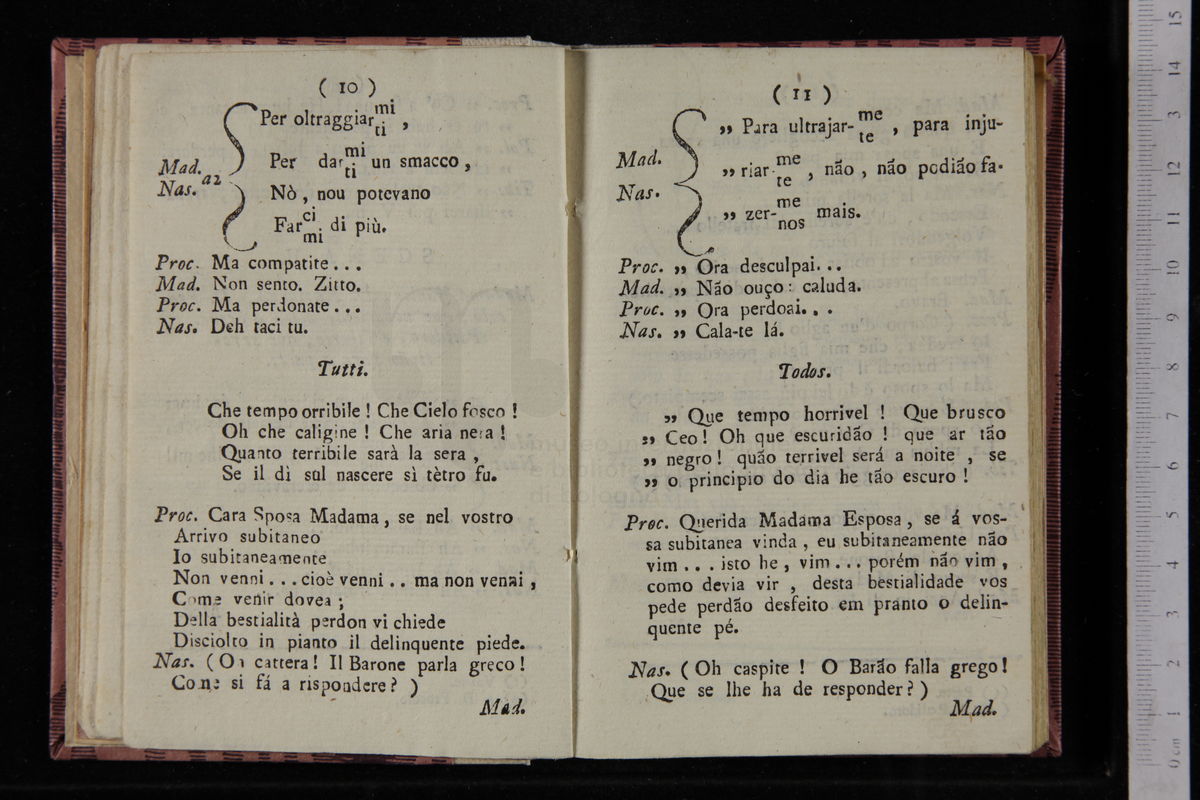 ( 10 )
Per oltraggiar mi ti ,
Mad. Nas. a2
Per dar mi ti un smacco ,
Nò , nou potevano
Far ci mi di più.
Proc. Ma compatite . . .
Mad. Non sento. Zitto.
Proc. Ma perdonate . . .
Nas. Deh taci tu.
Tutti.
Che tempo orribile ! Che Cielo fosco !
Oh che caligine ! Che aria nera !
Quanto terribile sarà la sera ,
Se il dì sul nascere sì tètro fu.
Proc. Cara Sposa Madama , se nel vostro
Arrivo subitaneo
Io subitaneamente
Non venni . . . cioè venni . . ma non venni ,
Come venir dovea ;
Della bestialità perdon vi chiede
Disciolto in pianto il delinquente piede.
Nas. ( Oi cattera ! Il Barone parla greco !
Come si fá a rispondere ? )
Mad.
( 11 )
„ Para ultrajar- me te , para inju-
Mad. Nas.
„ riar- me te , não , não podião fa-
„ zer- me nos mais.
Proc. „ Ora desculpai. . .
Mad. „ Não ouço : caluda.
Proc. „ Ora perdoai. . .
Nas. „ Cala-te lá.
Todos.
„ Que tempo horrivel ! Que brusco
„ Ceo ! Oh que escuridão ! que ar tão
„ negro ! quão terrivel será a noite , se
„ o principio do dia he tão escuro !
Proc. Querida Madama Esposa , se á vos-
sa subitanea vinda , eu subitaneamente não
vim . . . isto he , vim . . . porém não vim ,
como devia vir , desta bestialidade vos
pede perdão desfeito em pranto o delin-
quente pé.
Nas. ( Oh caspite ! O Barão falla grego !
Que se lhe ha de responder ? )
Mad.
0 cm 1 2 3 4 5 6 7 8 9 10 11 12 13 14 15